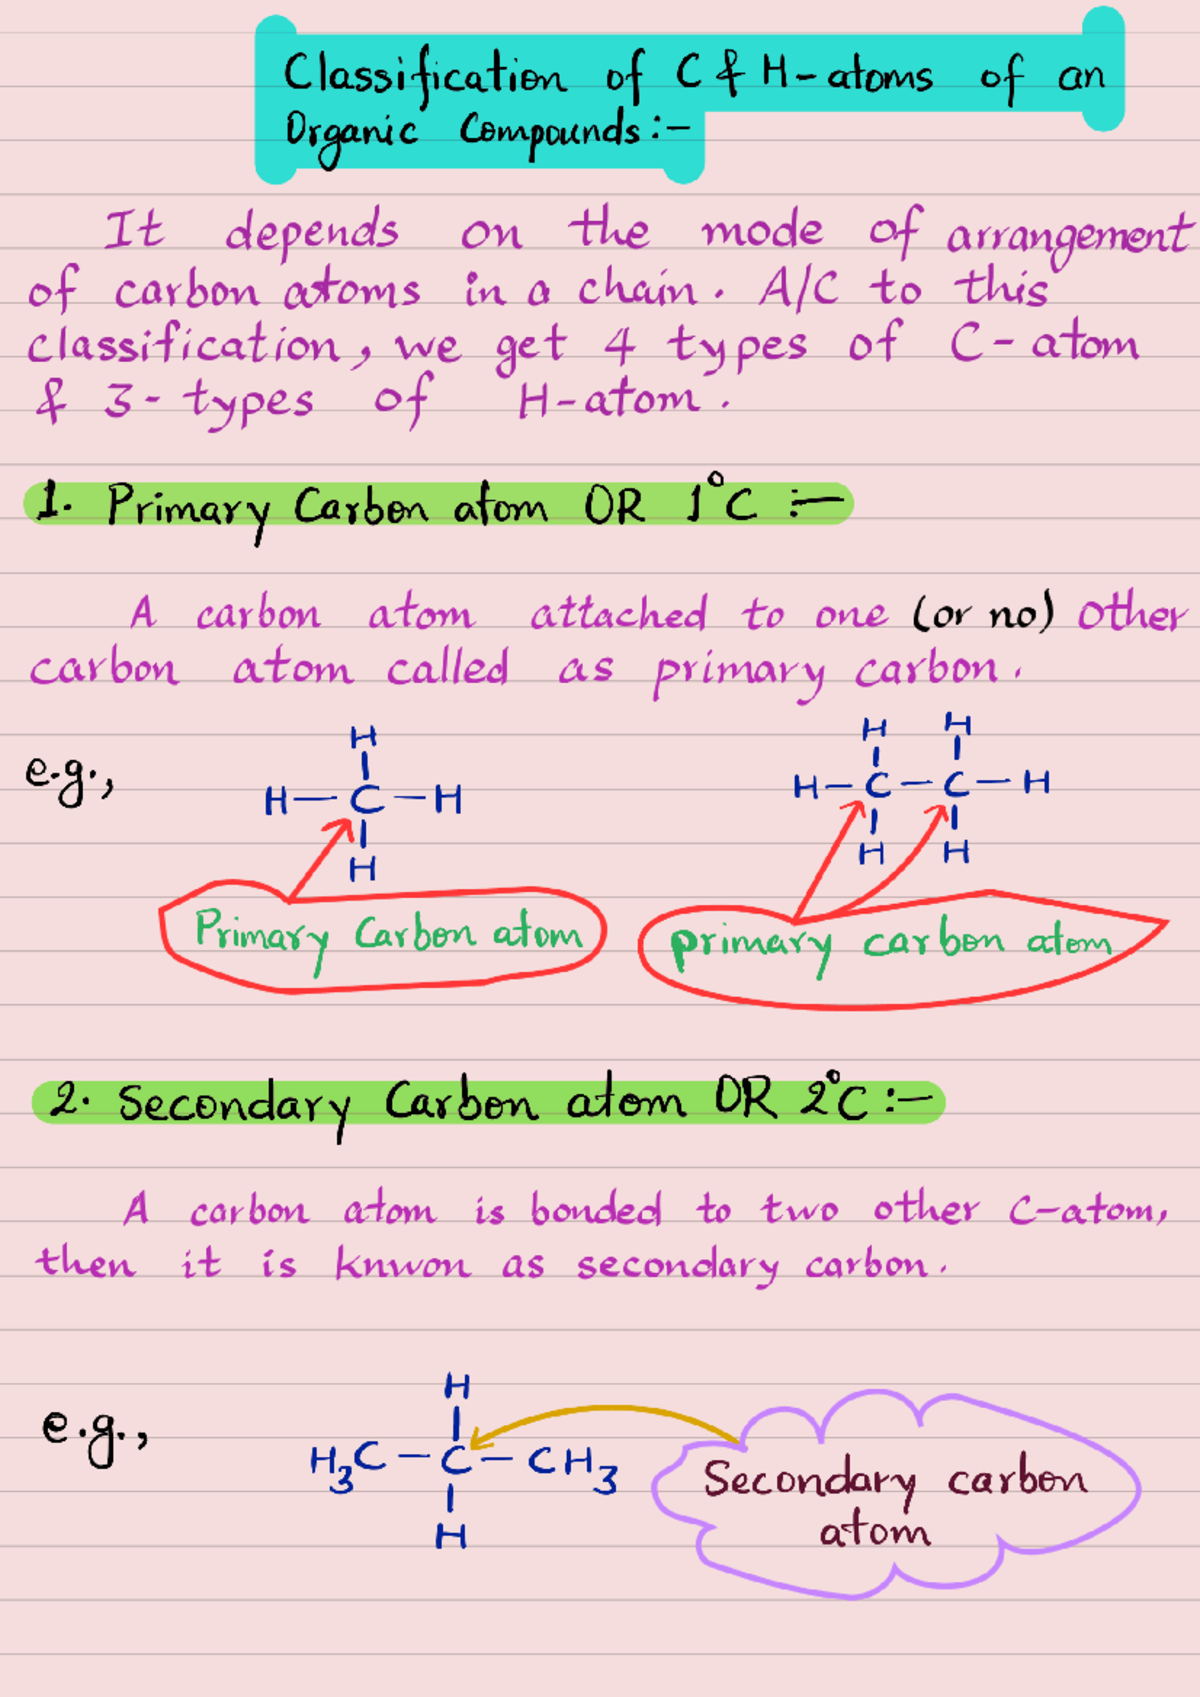 Classification of C & H-atoms of an
Organic Compounds:-
It depends on the mode of arrangement
of carbon atoms in a chain. A/C to this
classification, we get 4 types of C-atom
& 3-types of H-atom.
1. Primary Carbon atom OR 1°C :-
A carbon atom attached to one (or no) other
carbon atom called as primary carbon.
e.g.,
H
H—C—H
H
H H
H—C—C—H
H H
Primary Carbon atom
primary carbon atom
2. Secondary Carbon atom OR 2°C:-
A carbon atom is bonded to two other C-atom,
then it is knwon as secondary carbon.
e.g.,
H
H₃C—C—CH₃
H
Secondary carbon
atom